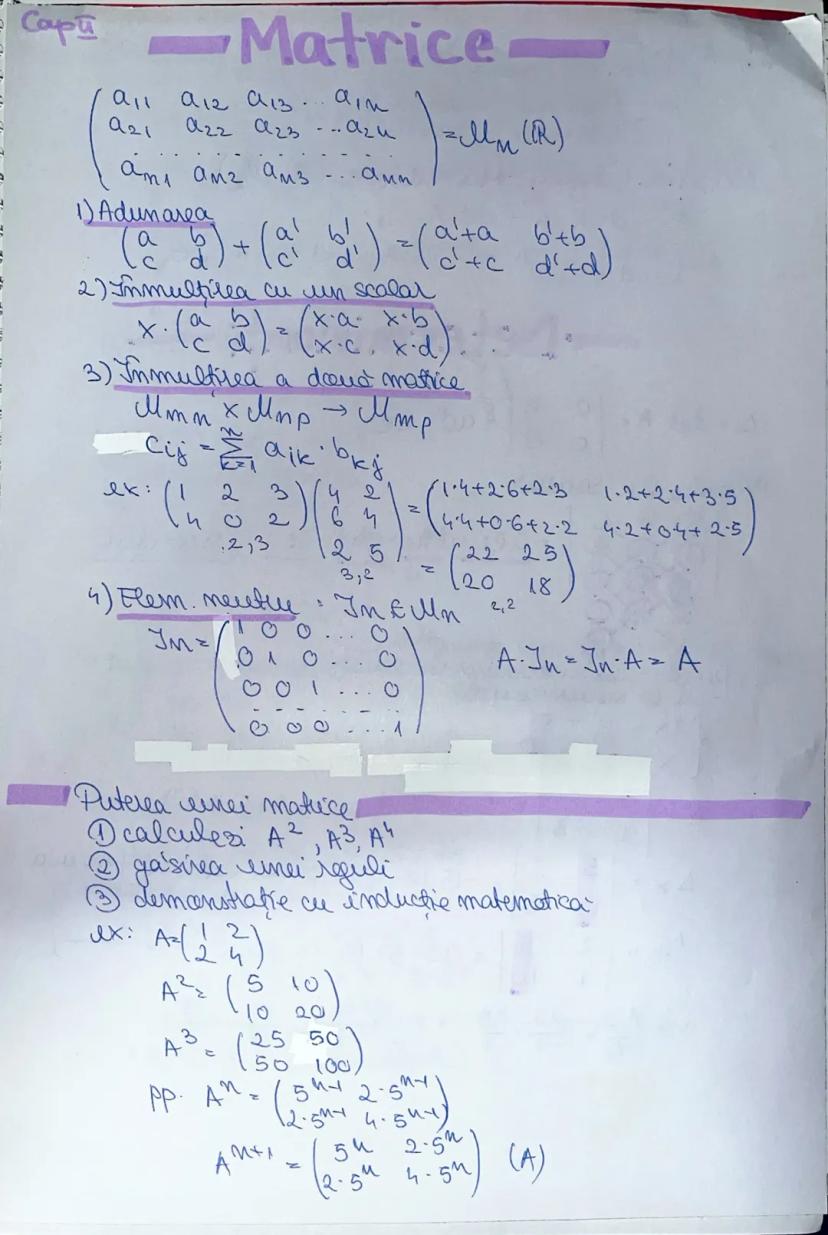 Cap II
Matrice
a11 a12 a13 ... a1n
a21 a22 a23 ... a2n = Mn (R)
an1 an2 an3 ... ann
1) Adunarea
(a b) + (a' b') = (a'+a b'+b)
(c d) (c' d') (c'+c d'+d)
2) Înmulțirea cu un scalar
x · (a b) = (x·a x·b)
(c d) (x·c x·d)
3) Înmulțirea a două matrice
Mmn x Mnp → Mmp
Cij = Σ k=1 n aik · bkj
ex: (1 2 3) (4 2) = (1·4+2·6+2·3 1·2+2·4+3·5)
(4 0 2) (6 4) (4·4+0·6+2·2 4·2+04+2·5)
2,3 (2 5) = (22 25)
3,2 (20 18)
2,2
4) Elem. neutru : In ∈ Mn
In = (1 0 0 ... 0)
(0 1 0 ... 0) A·In = In·A = A
(0 0 1 ... 0)
(0 0 0 ... 1)
Puterea unei matrice
① calculezi A², A³, A⁴
② găsirea unei reguli
③ demonstrație cu inducție matematică
ex: A=(1 2)
(2 4)
A² = (5 10)
(10 20)
A³ = (25 50)
(50 100)
pp. Aⁿ = (5ⁿ⁻¹ 2·5ⁿ⁻¹)
(2·5ⁿ⁻¹ 4·5ⁿ⁻¹)
Aⁿ⁺¹ = (5ⁿ 2·5ⁿ) (A)
(2·5ⁿ 4·5ⁿ)